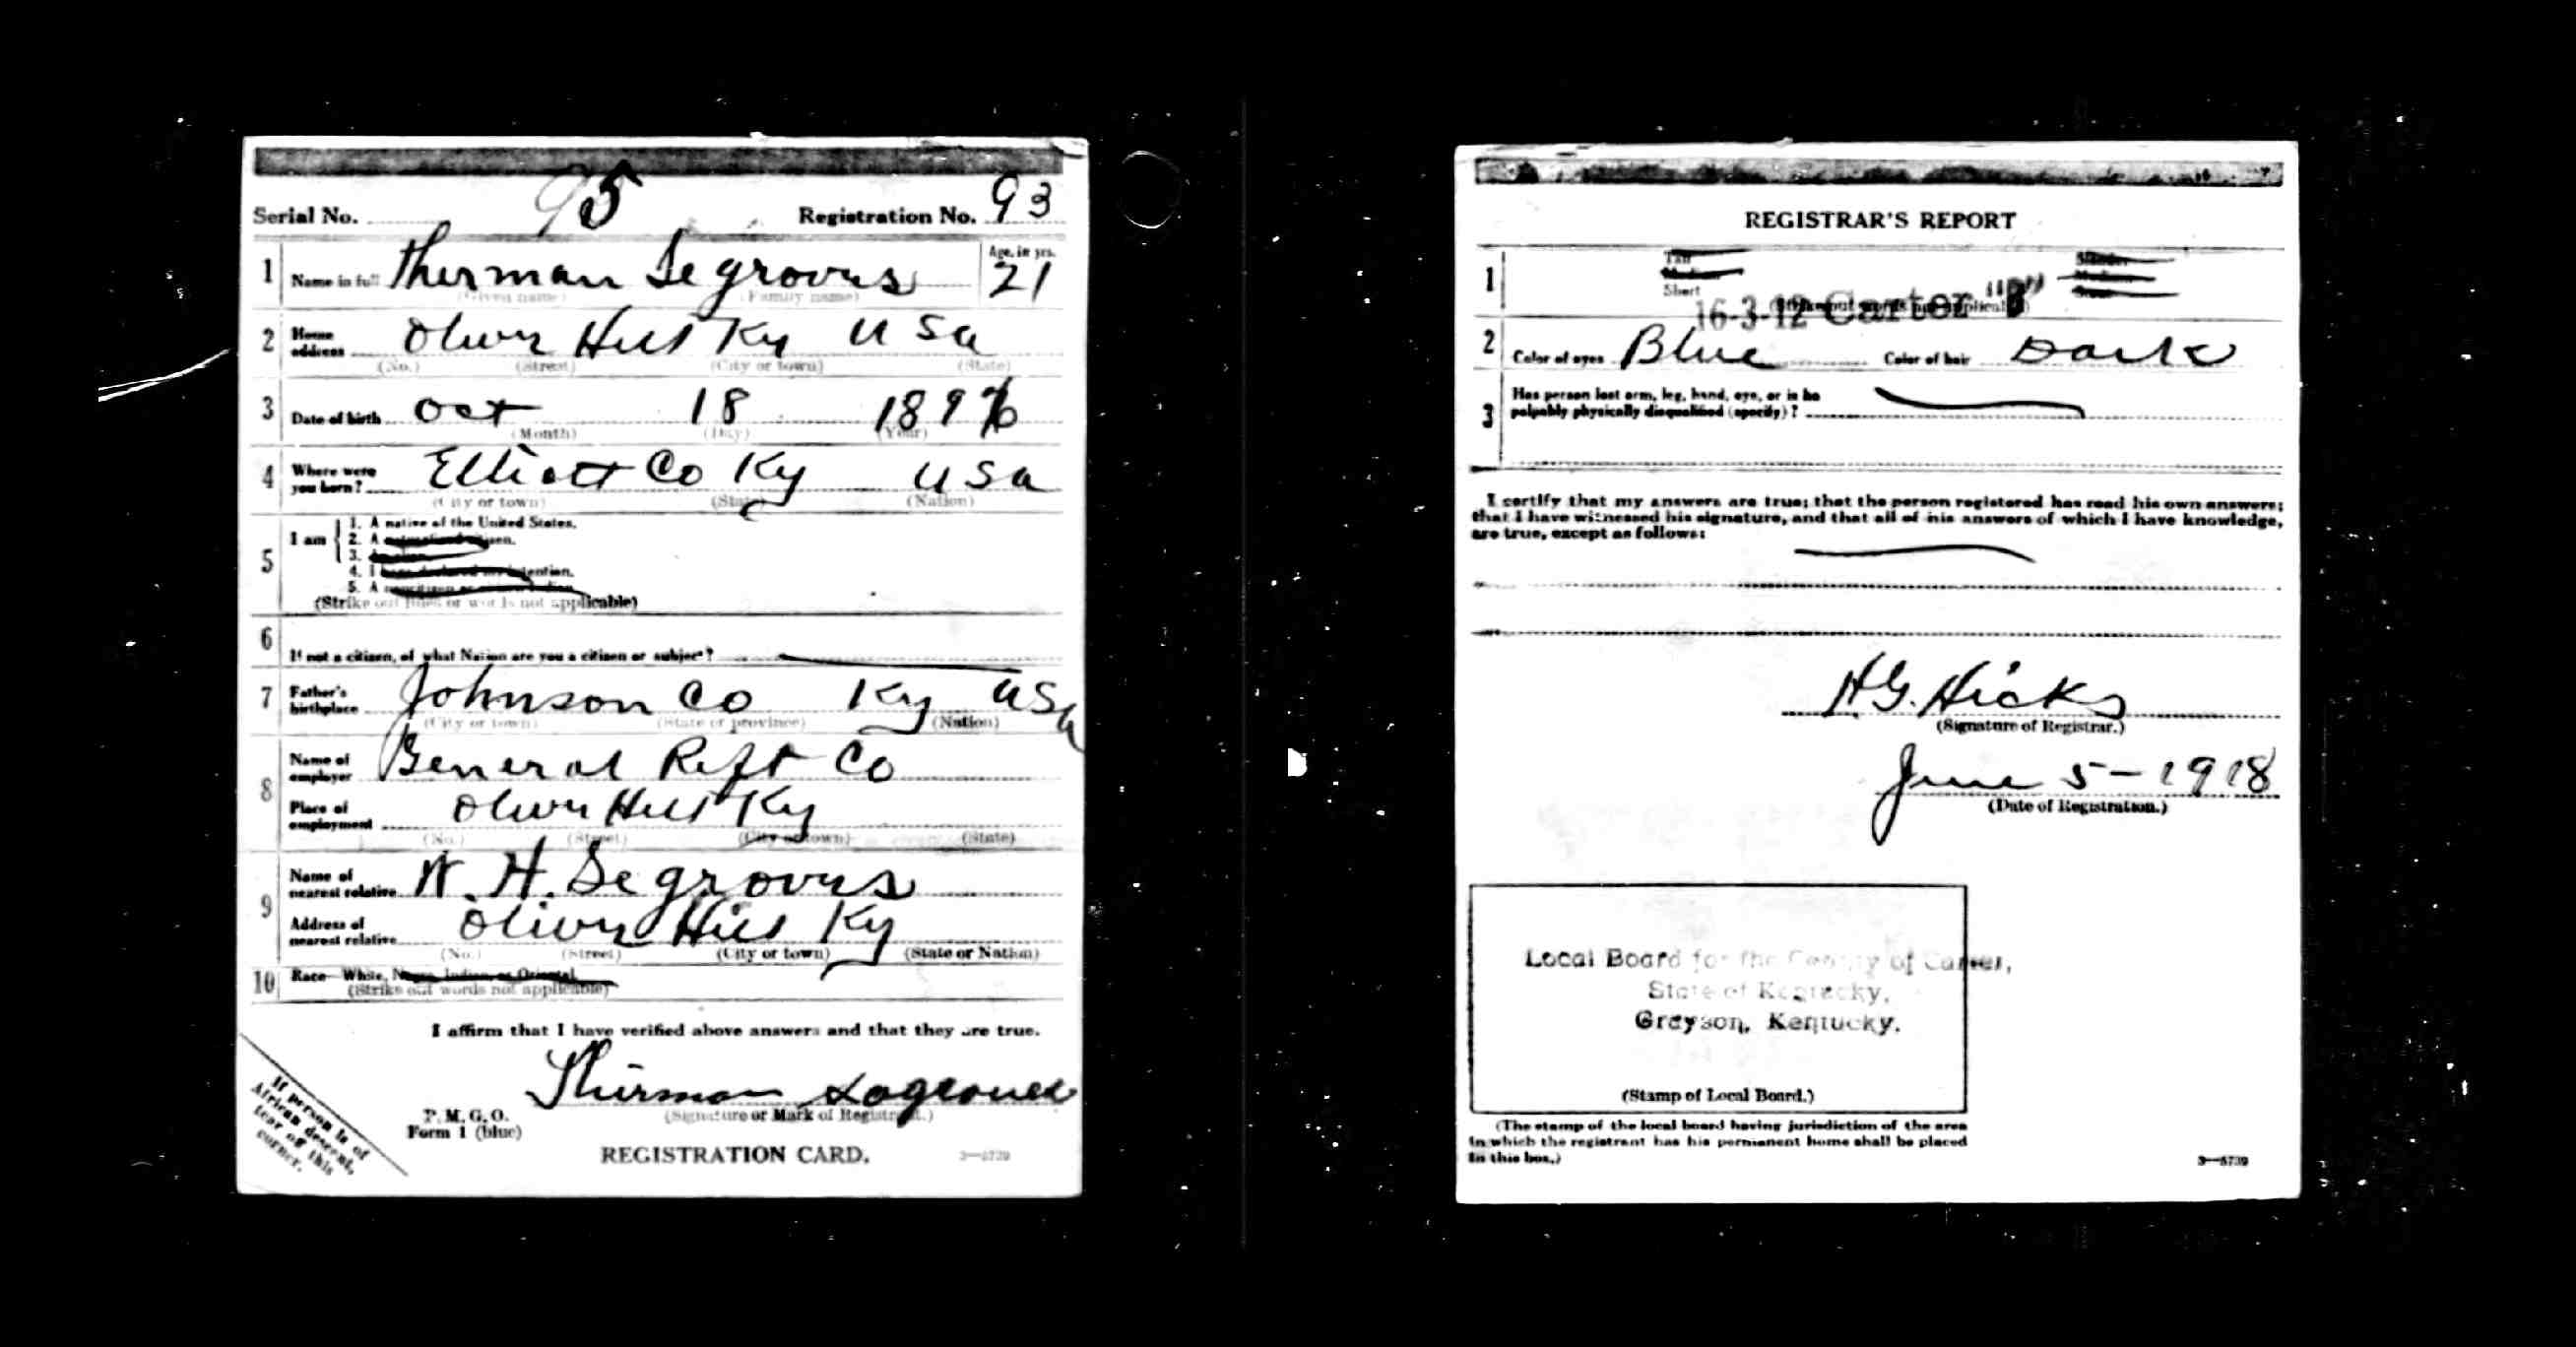 Serial No. 95 Registration No. 93
1 Name in full Therman Segroves Age, in yrs. 21
(Given name) (Family name)
2 Home address Oliver Hill Ky USa
(No.) (Street) (City or town) (State)
3 Date of birth Oct 18 1896
(Month) (Day) (Year)
4 Where were you born? Elliott Co Ky USa
(City or town) (State) (Nation)
5 I am
1. A native of the United States.
2. A citizen.
3.
4. I intention.
5. A
(Strike out lines or words not applicable)
6 If not a citizen, of what Nation are you a citizen or subject?
7 Father's birthplace Johnson Co Ky USa
(City or town) (State or province) (Nation)
8 Name of employer General Reft Co
Place of employment Oliver Hill Ky
(No.) (Street) (City or town) (State)
9 Name of nearest relative W. H. Segroves
Address of nearest relative Oliver Hill Ky
(No.) (Street) (City or town) (State or Nation)
10 Race—White, Negro, Indian, or Oriental
(Strike out words not applicable)
I affirm that I have verified above answers and that they are true.
Thurman Sagroves
(Signature or Mark of Registrant.)
P. M. G. O.
Form 1 (blue)
REGISTRATION CARD.
3—5739
If person is of
African descent,
tear off this
corner.
REGISTRAR'S REPORT
1 Tall Slender
Medium Medium
Short Stout
(Strike out words not applicable)
16-3-12 Carter "B"
2 Color of eyes Blue Color of hair Dark
3 Has person lost arm, leg, hand, eye, or is he
palpably physically disqualified (specify)?
I certify that my answers are true; that the person registered has read his own answers;
that I have witnessed his signature, and that all of his answers of which I have knowledge,
are true, except as follows:
H.G. Hicks
(Signature of Registrar.)
June 5-1918
(Date of Registration.)
Local Board for the County of Carter,
State of Kentucky,
Grayson, Kentucky.
(Stamp of Local Board.)
(The stamp of the local board having jurisdiction of the area
in which the registrant has his permanent home shall be placed
in this box.)
3—5739